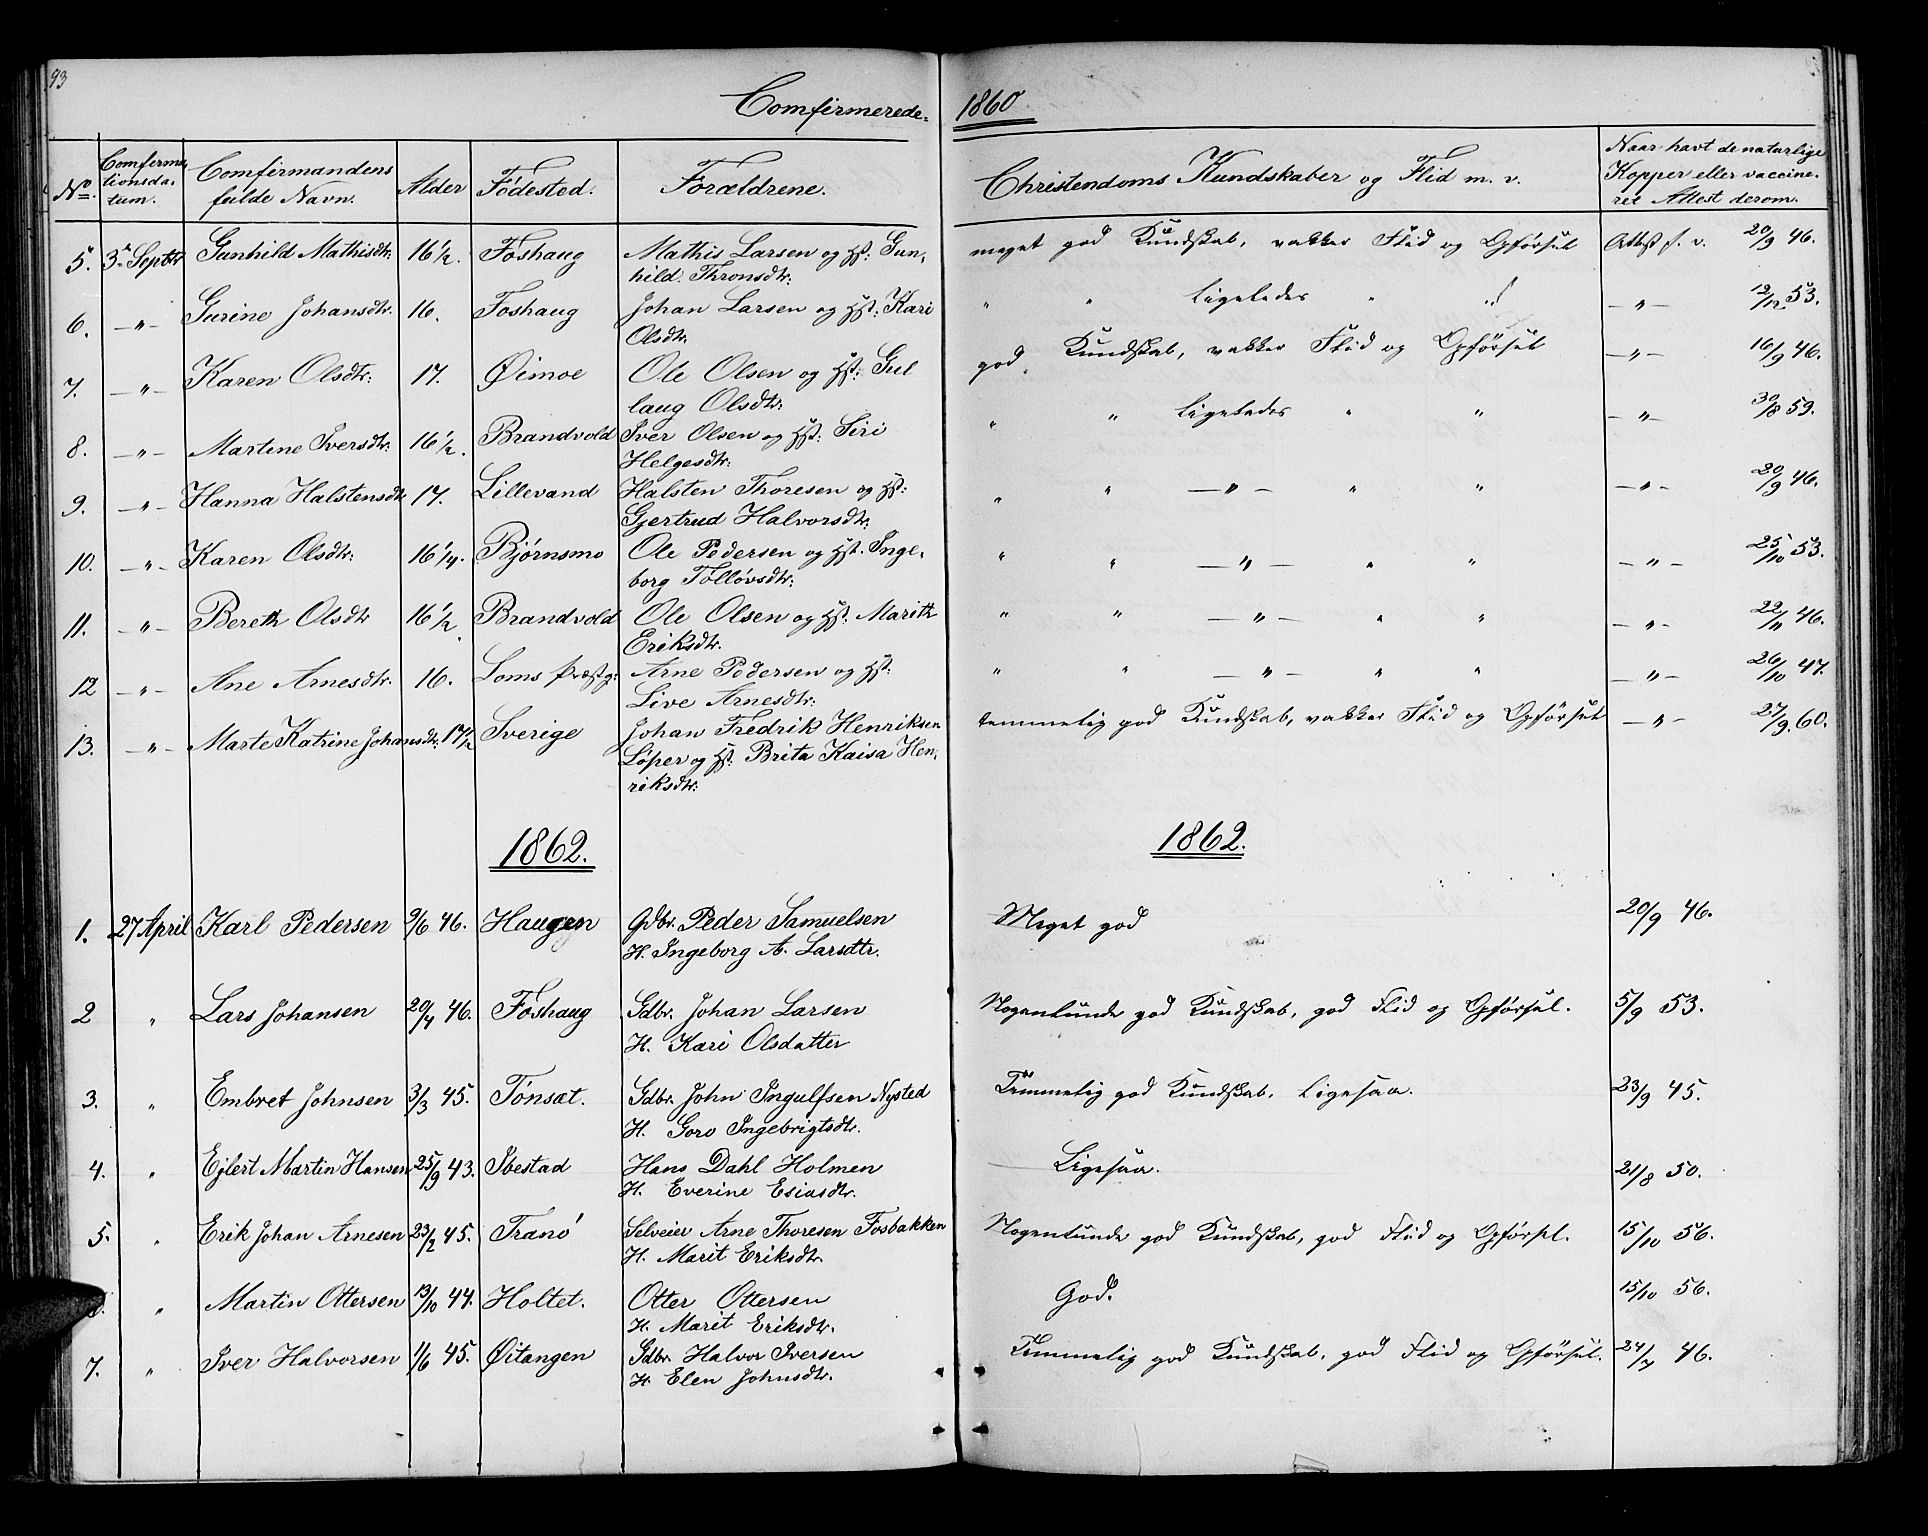 93
Comfirmerede- 1860
No. Comfirma- tionsda- tum. Comfirmandens fulde Navn. Alder Fødested. Forældrene. Christendoms Kundskaber og Flid m. v. Naar havt de naturlige Kopper eller vaccine- ret Attest derom.
5. 3. Septbr Gunhild Mathisdtr: 16 1/2. Foshaug Mathis Larsen og Hst: Gun- meget god Kundskab, vakker Flid og Opførsel Attest f. v. 20/9 46.
hild Thronsdtr:
6. -"- Gurine Johansdtr: 16. Foshaug Johan Larsen og Hst: Kari " " Ligeledes " " -"- 12/12 53.
Olsdtr:
7. -"- Karen Olsdtr: 17. Øimoe Ole Olsen og Hst: Gul god Kundskab, vakker Flid og Opførsel -"- 16/9 46.
laug Olsdtr:
8. -"- Martine Iversdtr: 16 1/2. Brandvold Iver Olsen og Hst: Siri " " Ligeledes " " -"- 30/8 59.
Helgesdtr:
9. -"- Hanna Halstensdtr 17. Lillevand Halsten Thoresen og Hst: " " -"- " " -"- 20/9 46.
Gjertrud Halvorsdtr:
10. -"- Karen Olsdtr: 16 1/4. Bjørnsmo Ole Pedersen og Hst. Inge- " " -"- " " -"- 25/10 53.
borg Tølløvsdtr:
11. -"- Bereth Olsdtr 16 1/2. Brandvold Ole Olsen og Hst. Marith " " -"- " " -"- 22/11 46.
Eriksdtr.
12 -"- Ane Arnesdtr. 16. Loms Præstg: Arne Pedersen og Hst: " " -"- " " -"- 26/10 47.
Live Arnesdtr:
13. -"- Marte Katrine Johansdtr: 17 1/2 Sverige Johan Fredrik Henriksen temmelig god Kundskab, vakker Flid og Opførsel -"- 27/9. 60.
Löper og Hst: Brita Kaisa Hen-
riksdtr:
1862. 1862.
1. 27 April Karl Pedersen 9/6 46. Haugen Gdbr. Peder Samuelsen Meget god 20/9 46.
H. Ingeborg A. Larsdtr.
2 " Lars Johansen 20/4 46. Foshaug Gdbr. Johan Larsen Nogenlunde god Kundskab, god Flid og Opførsel. 5/9 53.
H. Kari Olsdatter
3. " Embret Johnsen 3/3 45. Tønsæt. Gdbr. John Ingulfsen Nysted Temmelig god Kundskab, Ligesaa. 23/9 45.
H. Goro Ingebrigtsdtr.
4. " Ejlert Martin Hansen 25/9 43. Ibestad Hans Dahl Holmen Ligesaa. 21/8 50.
H. Everine Esiasdtr.
5. " Erik Johan Arnesen 23/2 45. Tranø Selveier Arne Thoresen Fosbakken Nogenlunde god Kundskab, god Flid og Opførsel. 15/10 56.
H. Marit Eriksdtr.
" Martin Ottersen 13/10 44. Holtet. Otter Ottersen God. 15/10 56.
H. Marit Eriksdtr.
7. " Iver Halvorsen 1/6 45. Øitangen Gdbr. Halvor Iversen Temmelig god Kundskab, god Flid og Opførsel. 24/7 46.
H. Elen Johnsdtr.